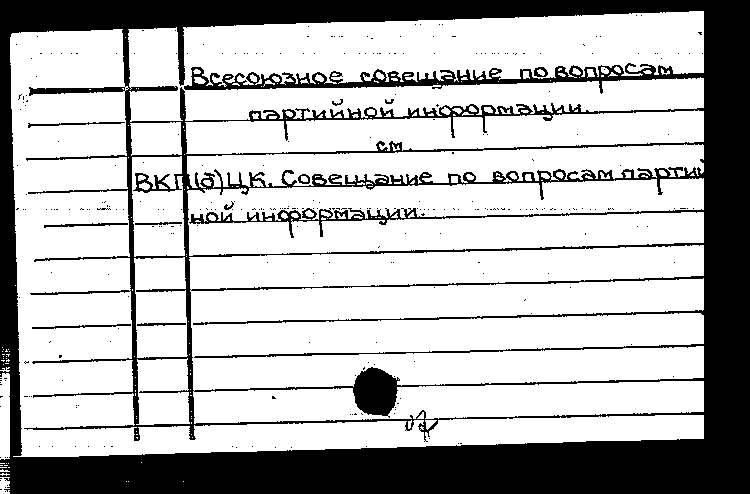 Всесоюзное совещание по вопросам
партийной информации.
см.
ВКП(б)ЦК. Совещание по вопросам партий
ной информации.